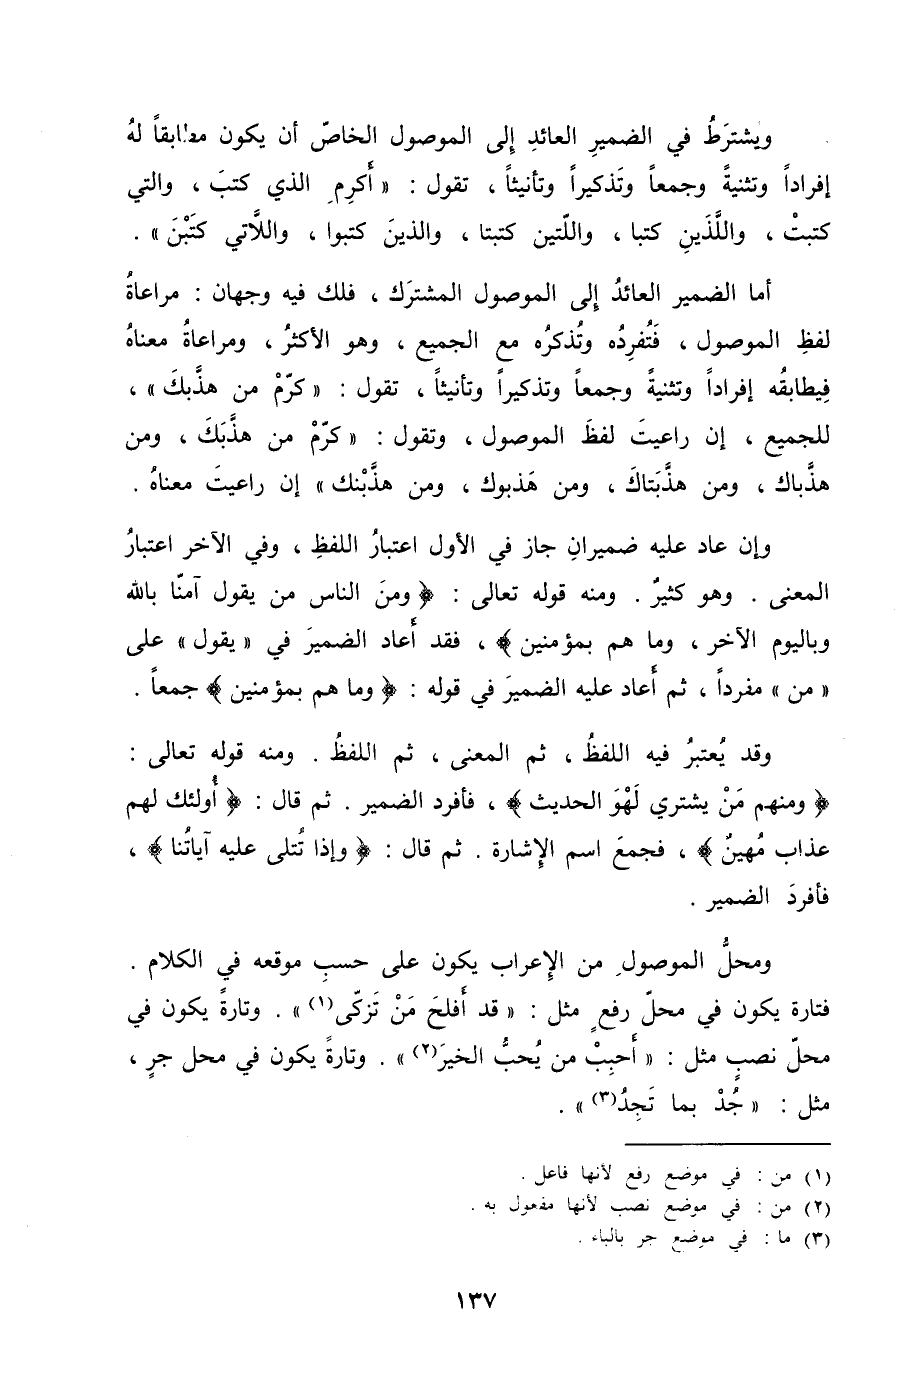 ويُشترَطُ في الضميرِ العائدِ إِلى الموصول الخاصّ أن يكون مطابقاً لهُ
إفراداً وتثنيةً وجمعاً وتَذكيراً وتأنيثاً ، تقول : « أَكرِمِ الذي كتبَ ، والتي
كتبتْ ، واللَّذَينِ كتبا ، واللّتين كتبتا ، والذينَ كتبوا ، واللَّاتي كتَبْنَ » .
أما الضمير العائدُ إِلى الموصول المشترَك ، فلك فيه وجهان : مراعاةُ
لفظِ الموصول ، فَتُفرِدُه وتُذكرُه مع الجميع ، وهو الأكثرُ ، ومراعاةُ معناهُ
فيطابقُه إفراداً وتثنيةً وجمعاً وتذكيراً وتأنيثاً ، تقول : « كرّمْ من هذَّبكَ » ،
للجميع ، إن راعيتَ لفظَ الموصول ، وتقول : « كرّمْ من هذَّبَكَ ، ومن
هذَّباك ، ومن هذَّبَتاكَ ، ومن هَذبوك ، ومن هذَّبْنك » إن راعيتَ معناهُ .
وإن عاد عليه ضميرانِ جاز في الأول اعتبارُ اللفظِ ، وفي الآخر اعتبارُ
المعنى . وهو كثيرٌ . ومنه قوله تعالى : ﴿ ومنَ الناس من يقول آمنّا بالله
وباليوم الآخر ، وما هم بمؤمنين ﴾ ، فقد أَعاد الضميرَ في « يقول » على
« من » مفرداً ، ثم أَعاد عليه الضميرَ في قوله : ﴿ وما هم بمؤمنين ﴾ جمعاً .
وقد يُعتبرُ فيه اللفظُ ، ثم المعنى ، ثم اللفظُ . ومنه قوله تعالى :
﴿ ومنهم مَنْ يشتري لَهْوَ الحديث ﴾ ، فأفرد الضمير . ثم قال : ﴿ أُولئك لهم
عذاب مُهينٌ ﴾ ، فجمعَ اسم الإِشارة . ثم قال : ﴿ وإذا تُتلى عليه آياتُنا ﴾ ،
فأفردَ الضمير .
ومحلُّ الموصولِ من الإِعراب يكون على حسبِ موقعه في الكلام .
فتارة يكون في محلّ رفعٍ مثل : « قد أَفلحَ مَنْ تَزكّى(١) » . وتارةً يكون في
محلّ نصبٍ مثل : « أَحبِبْ من يُحبُّ الخيرَ(٢) » . وتارةً يكون في محل جرٍ ،
مثل : « جُدْ بما تَجِدُ(٣) » .
(١) من : في موضع رفع لأنها فاعل .
(٢) من : في موضع نصب لأنها مفعول به .
(٣) ما : في موضع جر بالباء .
١٣٧